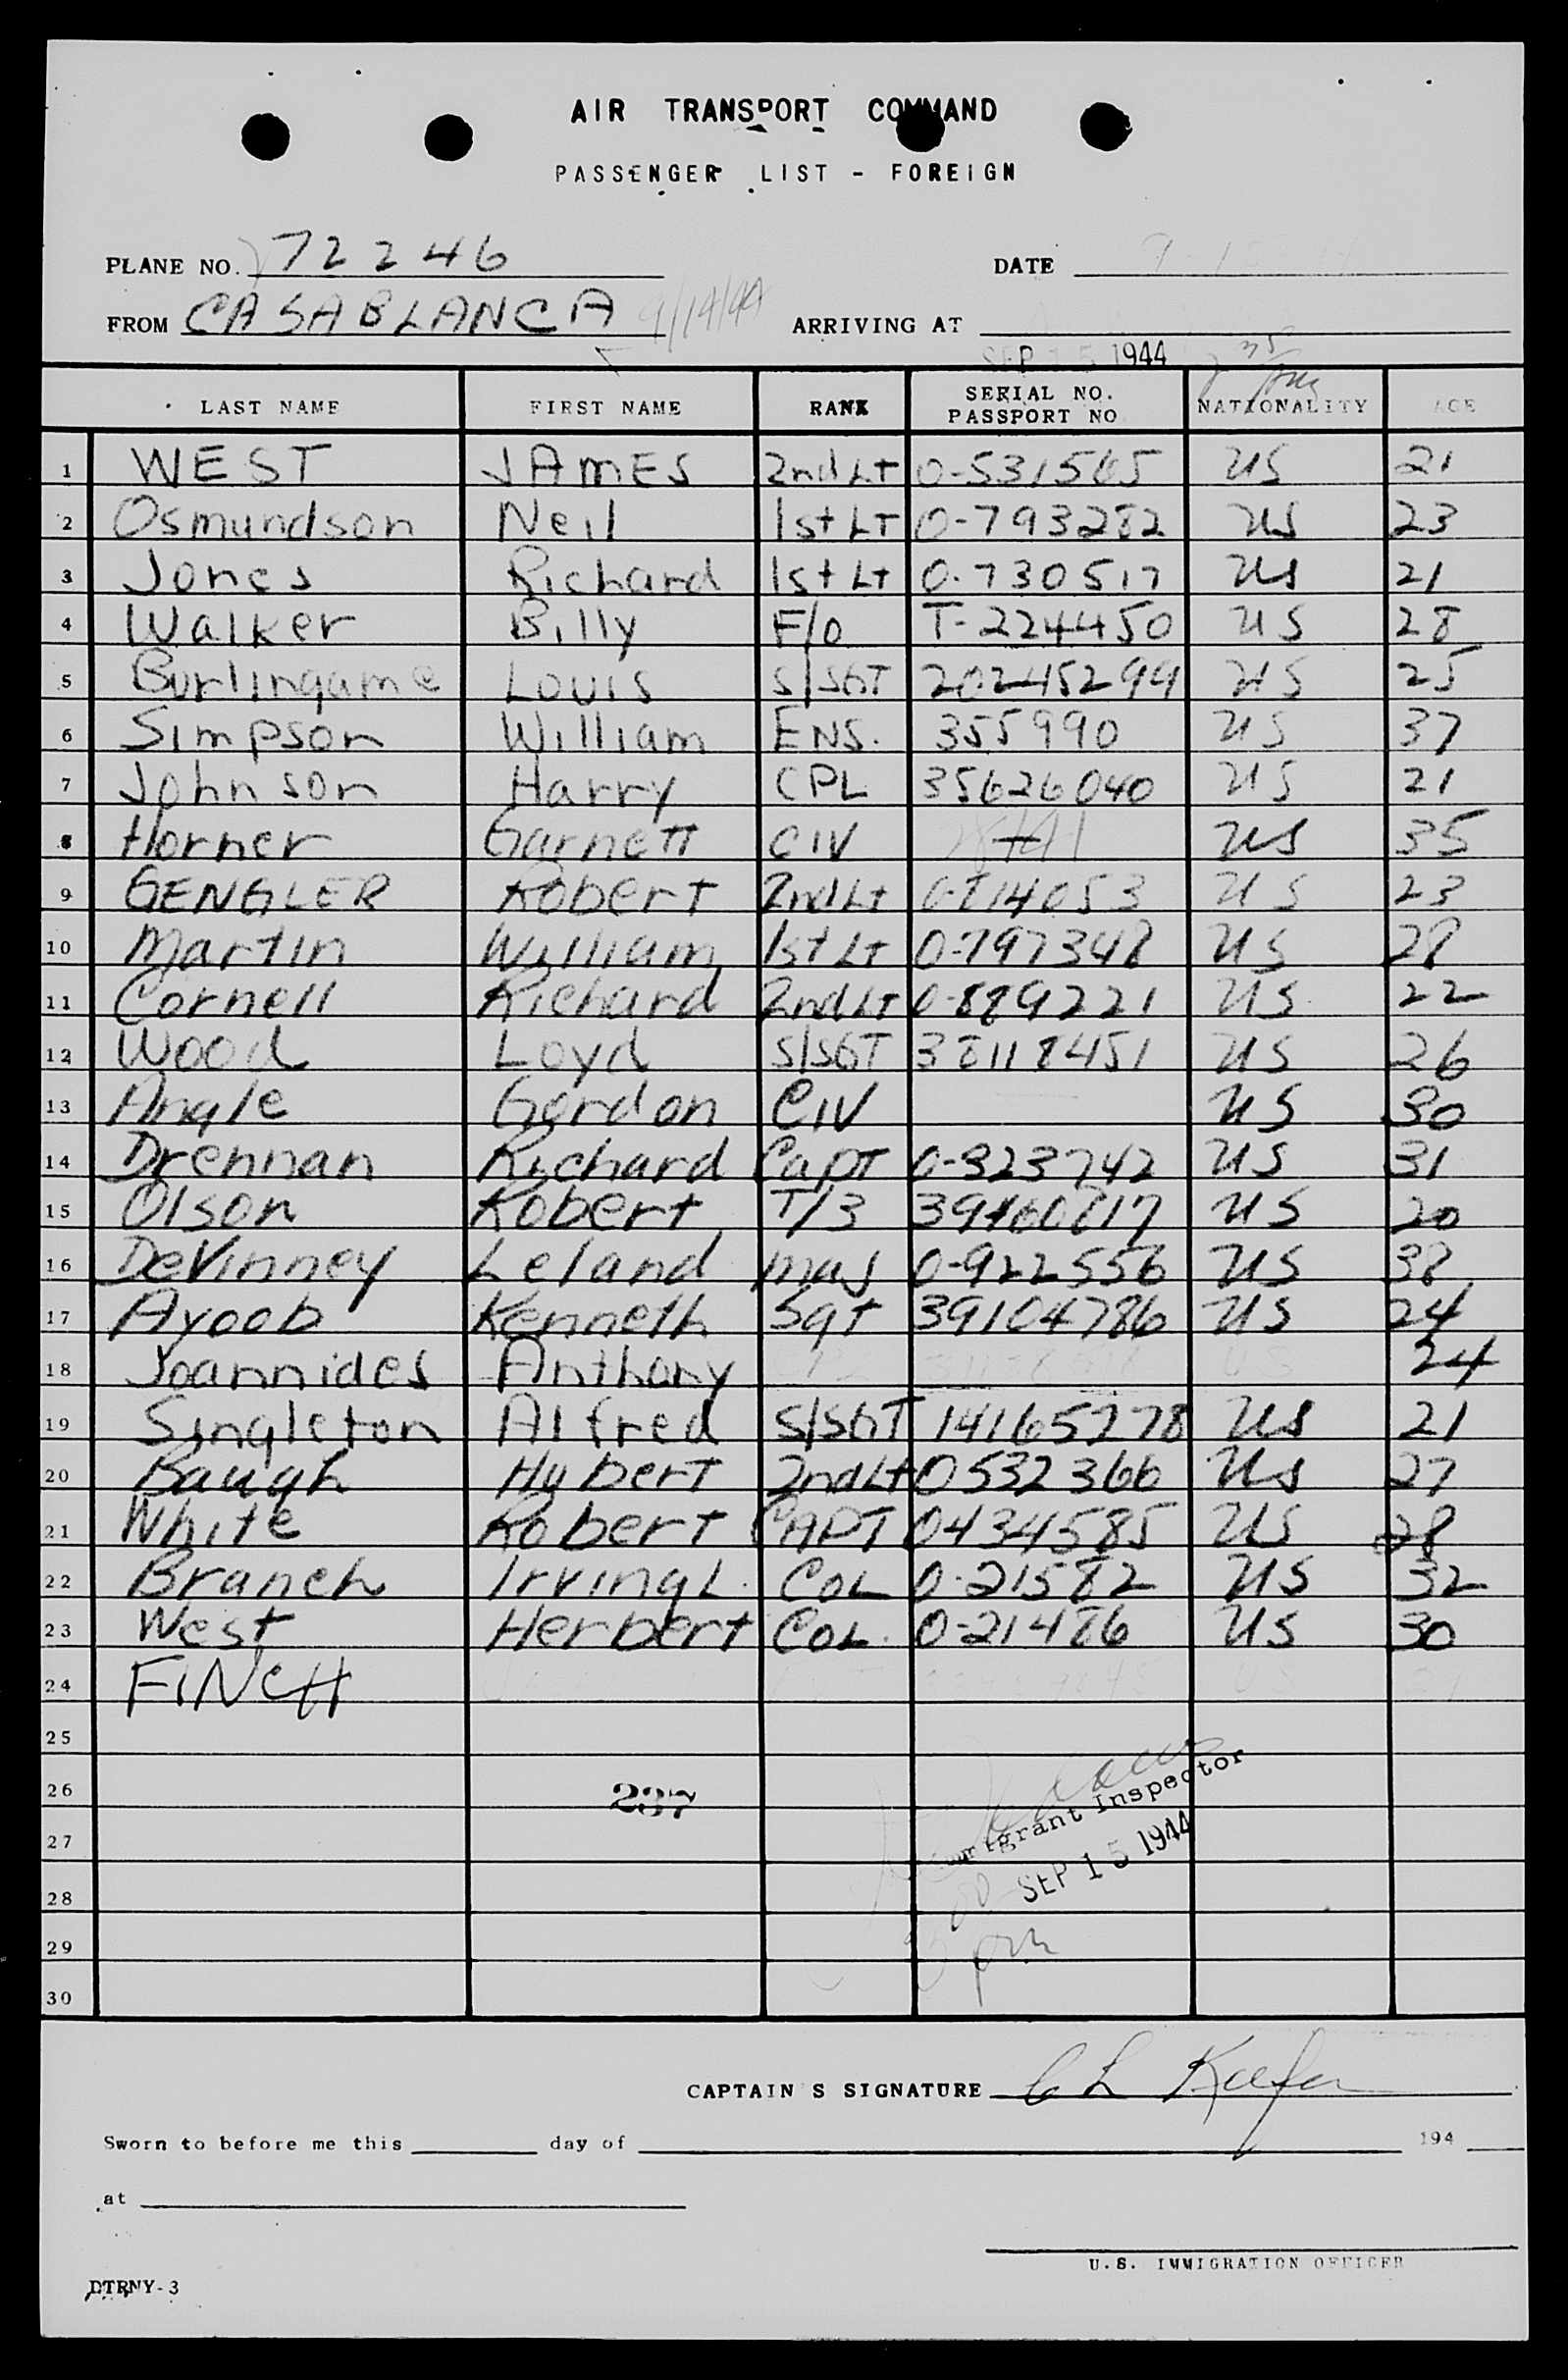 AIR TRANSPORT COMMAND
PASSENGER LIST - FOREIGN
PLANE NO. 72246 DATE
FROM CASABLANCA 9/14/44 ARRIVING AT
SEP 15 1944
LAST NAME FIRST NAME RANK SERIAL NO. PASSPORT NO NATIONALITY AGE
1 WEST JAMES 2nd Lt 0-531565 US 21
2 Osmundson Neil 1st LT 0-793282 US 23
3 Jones Richard 1st Lt 0-730517 US 21
4 Walker Billy F/O T-224450 US 28
5 Burlingame Louis S/SGT 20245299 US 25
6 Simpson William ENS. 355990 US 37
7 Johnson Harry CPL 35626040 US 21
8 Horner Garnett CIV US 35
9 GENGLER Robert 2nd Lt 0-814053 US 23
10 Martin William 1st Lt 0-797348 US 28
11 Cornell Richard 2nd Lt 0-889221 US 22
12 Wood Loyd S/SGT 38118451 US 26
13 Angle Gordon CIV US 30
14 Drennan Richard Capt 0-323742 US 31
15 Olson Robert T/3 US 20
16 DeVinney Leland Maj 0-922556 US 38
17 Ayoob Kenneth Sgt 39104786 US 24
18 Joannides Anthony US 24
19 Singleton Alfred S/SGT 14165278 US 21
20 Baugh Hubert 2nd Lt 0532366 US 27
21 White Robert CAPT 0434585 US 28
22 Branch Irving L. COL 0-21582 US 32
23 West Herbert COL. 0-21486 US 30
24 FINCH
25
26 237
27 Immigrant Inspector
28 SEP 15 1944
29 pm
30
CAPTAIN S SIGNATURE C L Keefer
Sworn to before me this day of 194
at
U.S. IMMIGRATION OFFICER
DTRNY-3